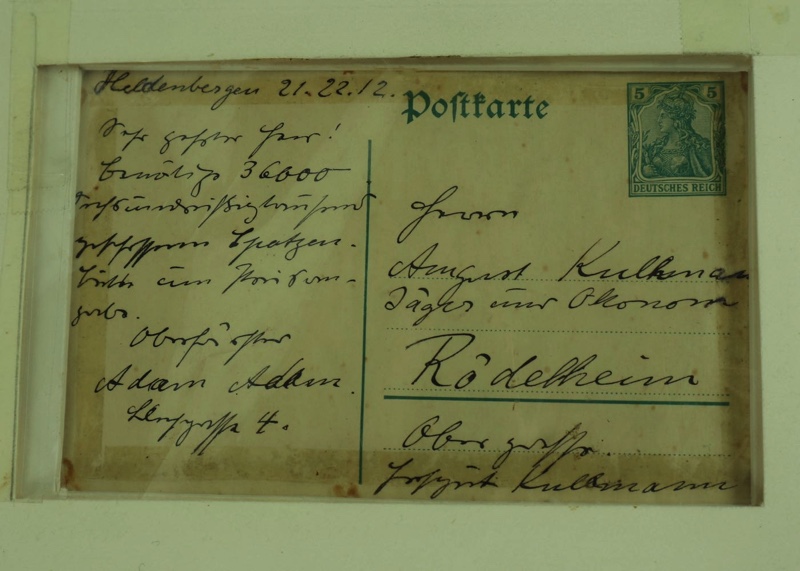 Heldenbergen 21.22.12.
Sehr geehrter Herr!
benötige 36000
sechsunddreißigtausend
geschossene Spatzen.
bitte um Preisan-
gabe.
Oberförster
Adam Adam.
4.
Postkarte
5 5
DEUTSCHES REICH
Herrn
August Kullmann
Jäger und Ökonom
Rödelheim
Obergasse.
Hofgut Kullmann